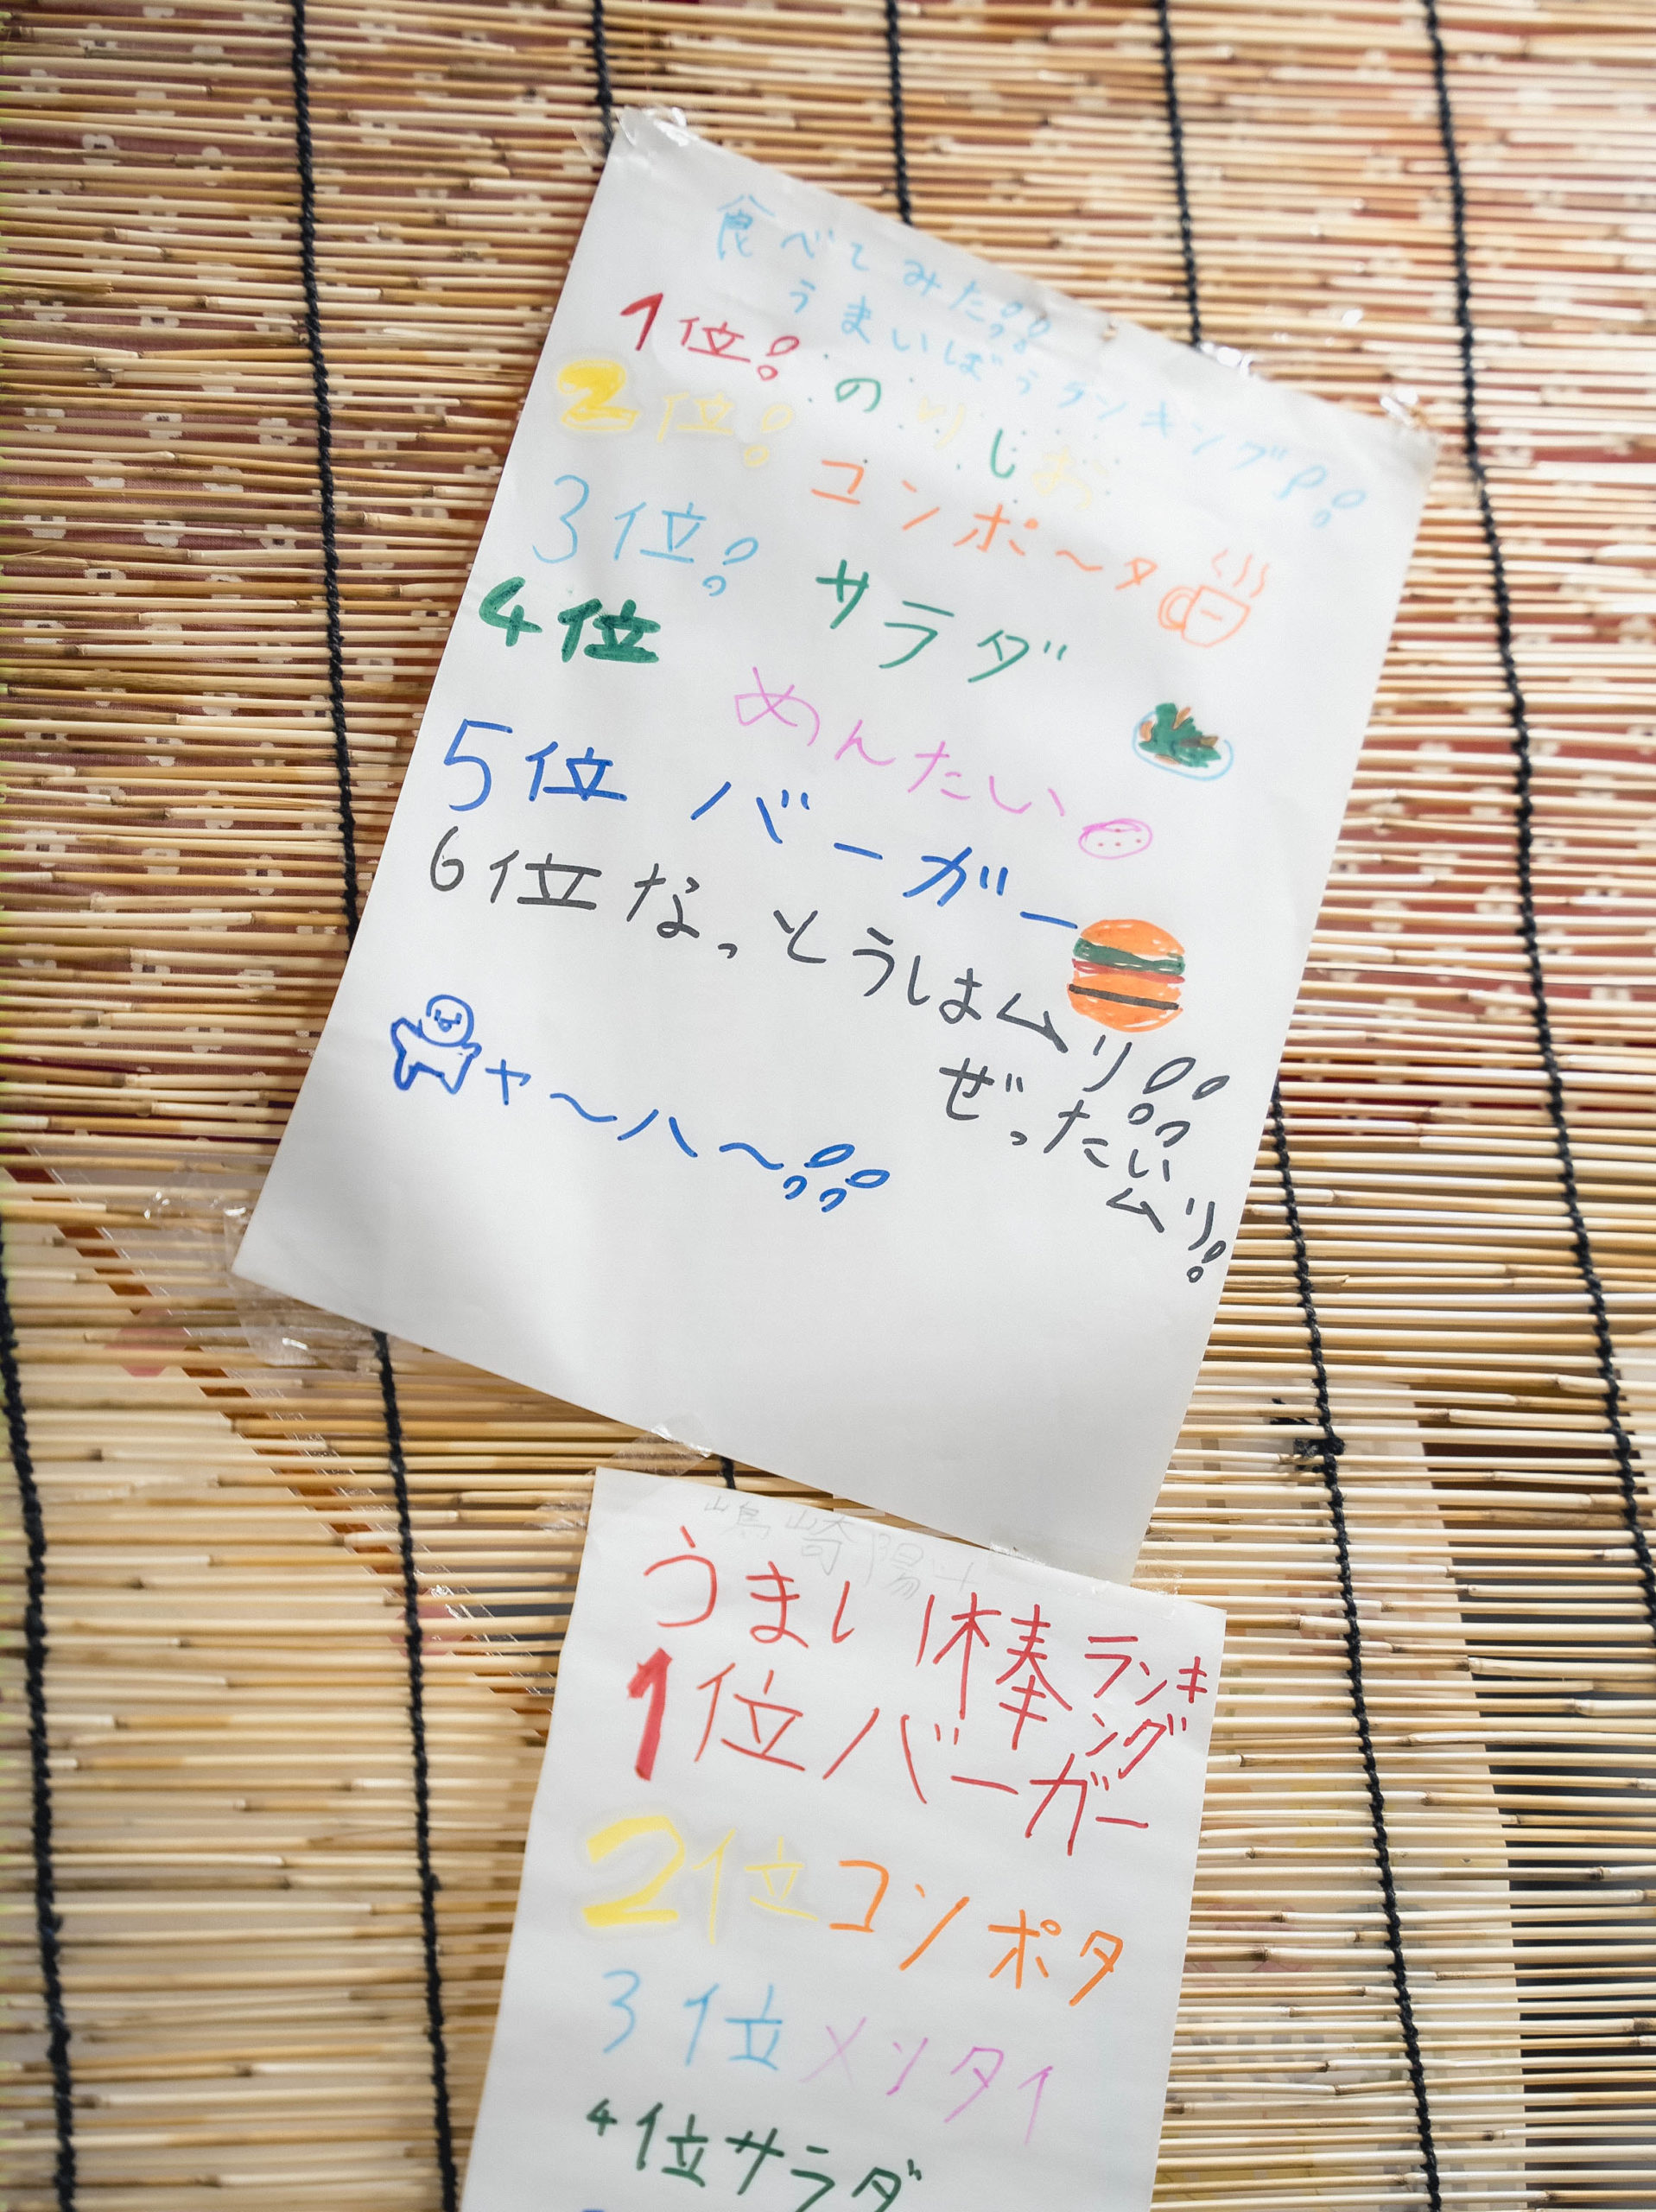 食べてみた!!
うまいぼうランキング!!
1位! のりしお
2位! コンポ〜タ
3位! サラダ
4位 めんたい
5位 バーガー
6位 なっとうはムリ!!
ぜったい
ムリ!
ヤ〜ハ〜!!
うまい棒ランキ
ング
1位バーガー
2位コンポタ
3位メンタイ
4位サラダ